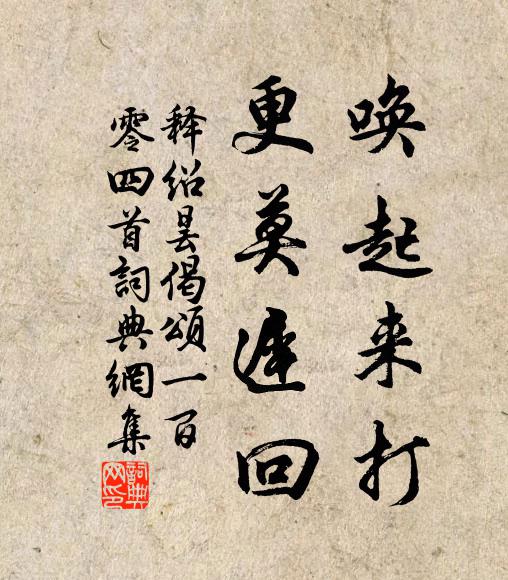 唤起来打
更莫迟回
释绍昙偈颂一百
零四首詞典網集
詞典网印